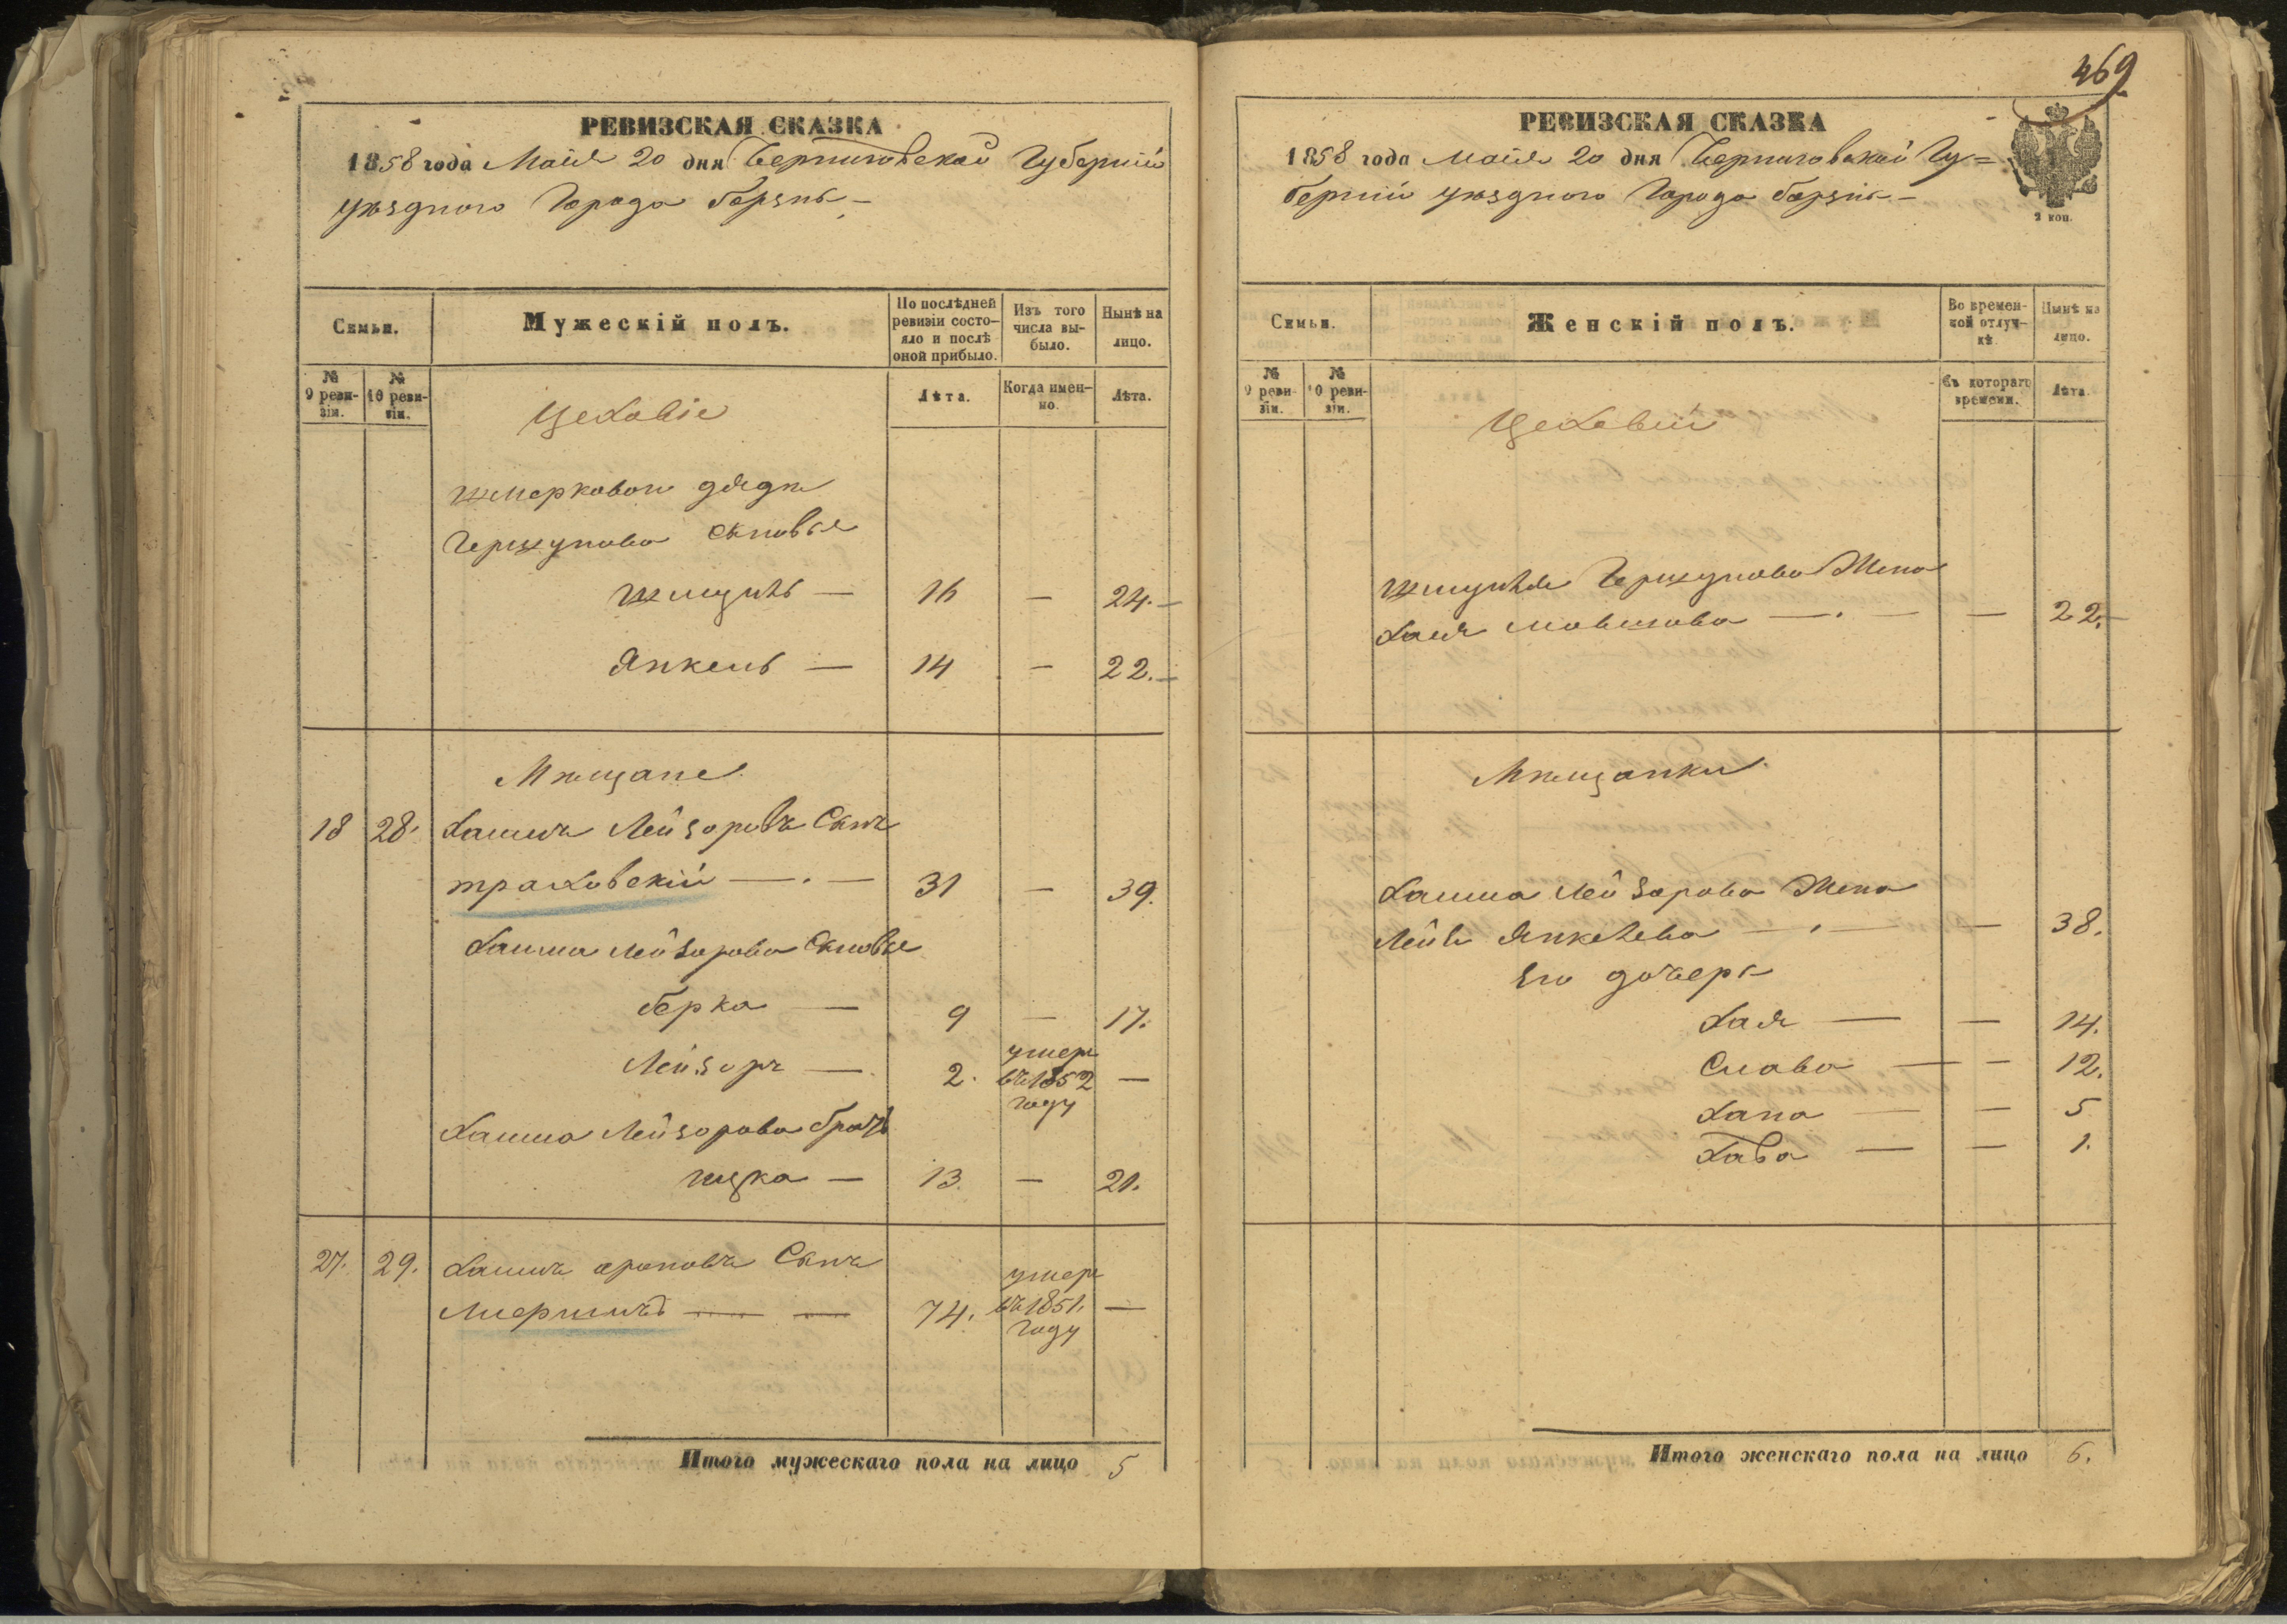 РЕВИЗСКАЯ СКАЗКА
1858 года Мая 20 дня Черниговской Губерніи
уѣзднаго Города Борзны
Семьи.
Мужескій полъ.
По послѣдней ревизіи состояло и послѣ оной прибыло.
Изъ того числа выбыло.
Нынѣ на лицо.
№ 9 ревизіи.
№ 10 ревизіи.
Лѣта.
Когда именно.
Лѣта.
Цеховіе
Шмерковои дяди
Гершунова сыновья
16 — 24.
Янкель — 14 — 22.
Мѣщане
18 28. Хаимъ Лейзоровъ Сынъ
траховскій — 31 — 39.
Хаима Лейзорова Сыновья
берка — 9 — 17.
Лейзоръ — 2. умеръ въ 1852 году —
Хаима Лейзорова братъ
ицка — 13. — 21.
27. 29. Хаимъ ароновъ Сынъ
74. умеръ въ 1851. году —
Итого мужескаго пола на лицо 5
469
РЕВИЗСКАЯ СКАЗКА
1858 года Мая 20 дня Черниговской Гу=
берніи уѣзднаго Города борзны
2 коп.
Семьи.
Женскій полъ.
Во временной отлучкѣ.
Нынѣ на лицо.
№ 9 ревизіи.
№ 10 ревизіи.
Съ котораго времени.
Лѣта.
Цеховыи
Гершунова Жена
Хая мовшова — — 22.
Мѣщанки
Хаима Лейзорова Жена
Янкелева — — 38.
Его дочери
Хая — — 14.
Слава — — 12.
Хана — — 5
Хава — — 1.
Итого женскаго пола на лицо 6.